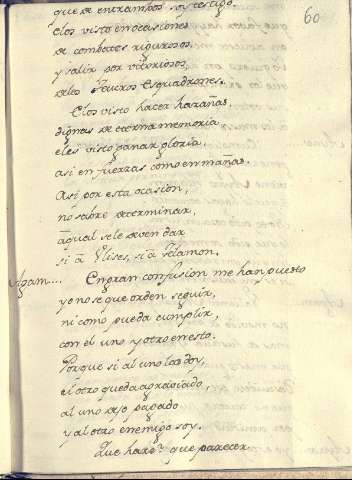 60
que de entrambos soy testigo.
Elos visto en ocasiones
de combates rigurosos,
y salir por vitoriosos,
delos Teucros Esquadrones.
Elos visto hacer hazañas
dignas de eterna memoria
eles visto ganar gloria,
asi en fuerzas como en mañas.
Asi por esta ocasion,
no sabre determinar,
aqual sele deven dar
si â Ulises, si â Telamon.
Agam.... En gran confusion me han puesto
yo no se que orden seguir,
ni como pueda cumplir,
con el uno y otro en esto.
Porque si al uno las doy,
el otro queda agraviado,
al uno dejo pagado
y al otro enemigo soy.
Que hare? que parecer